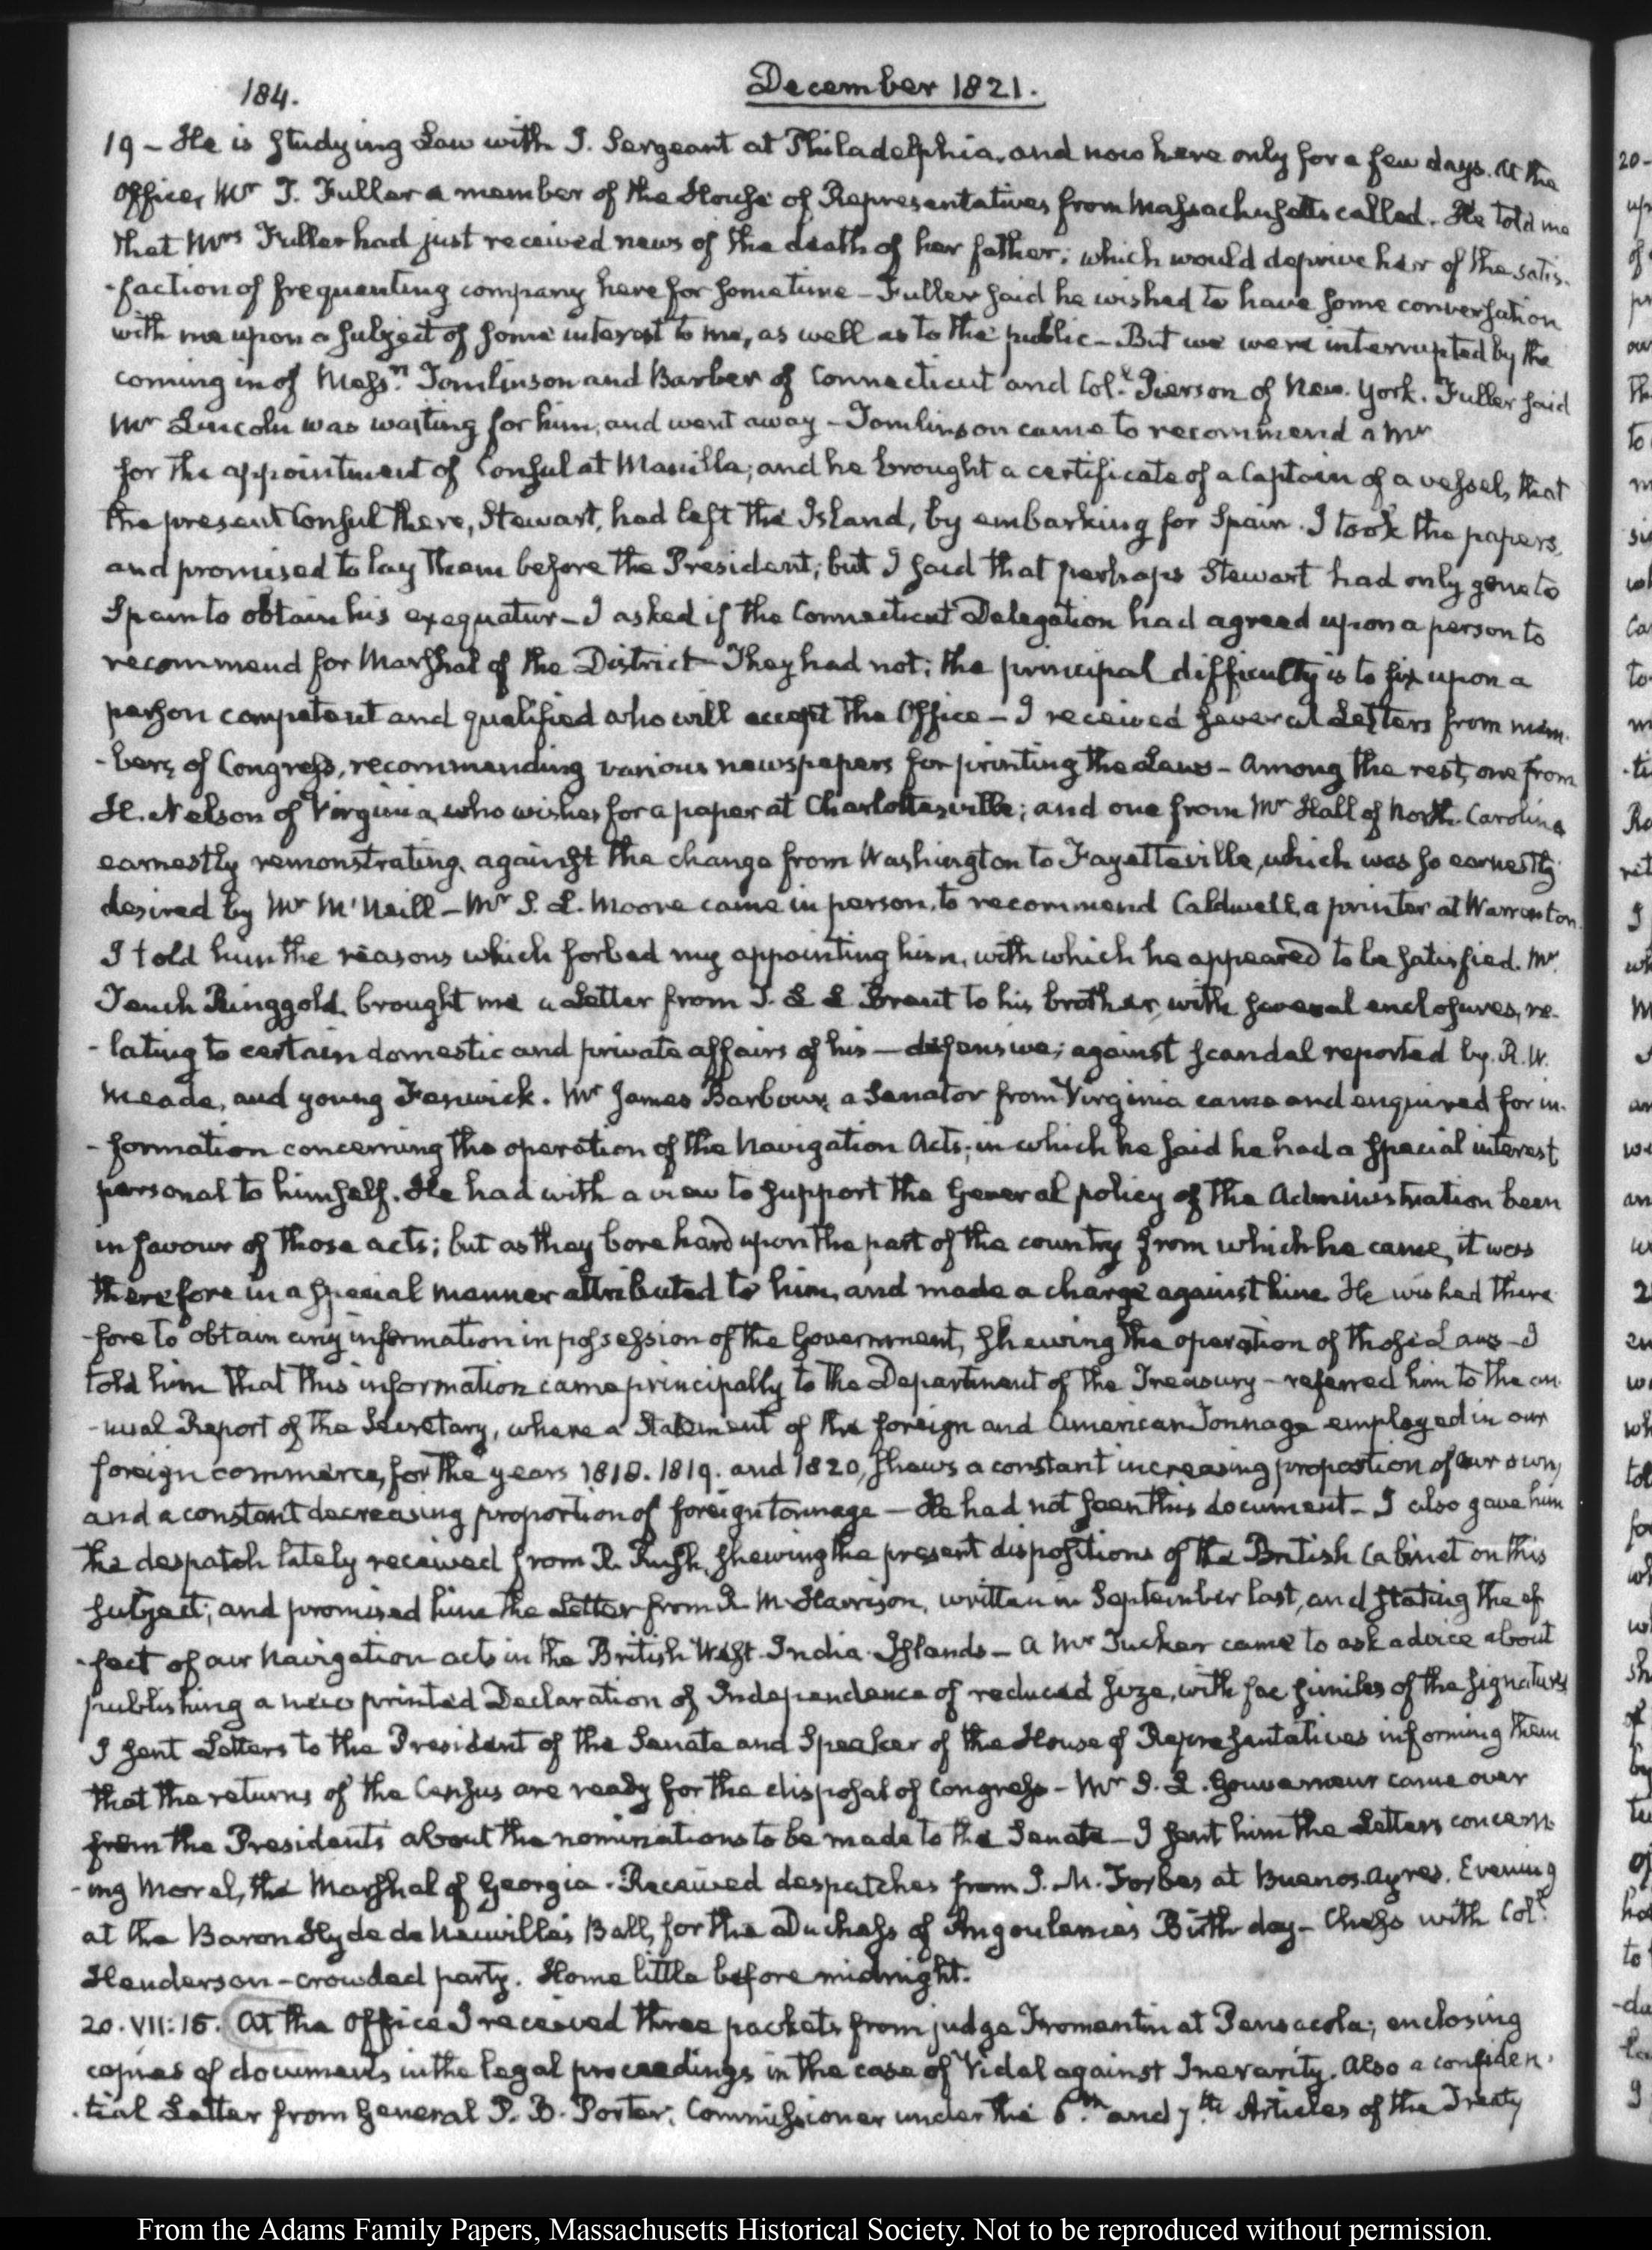 184.
December 1821.
19 - He is studying Law with J. Sergeant at Philadelphia, and now here only for a few days. At the
Office, Mr T. Fuller a member of the House of Representatives from Massachusetts called. He told me
that Mrs Fuller had just received news of the death of her father; which would deprive her of the satis-
-faction of frequenting company here for sometime - Fuller said he wished to have some conversation
with me upon a subject of some interest to me, as well as to the public - But we were interrupted by the
coming in of Messrs Tomlinson and Barber of Connecticut and Coll. Pierson of New-York. Fuller said
Mr Lincoln was waiting for him, and went away - Tomlinson came to recommend a Mr
for the appointment of Consul at Manilla; and he brought a certificate of a Captain of a vessel, that
the present Consul there, Stewart, had left the Island, by embarking for Spain. I took the papers,
and promised to lay them before the President; but I said that perhaps Stewart had only gone to
Spain to obtain his exequatur - I asked if the Connecticut Delegation had agreed upon a person to
recommend for Marshal of the District - They had not: the principal difficulty is to fix upon a
person competent and qualified who will accept the Office - I received several Letters from mem-
-bers of Congress, recommending various newspapers for printing the Laws - Among the rest, one from
H. Nelson of Virginia, who wishes for a paper at Charlottesville; and one from Mr Hall of North-Carolina
earnestly remonstrating against the change from Washington to Fayetteville, which was so earnestly
desired by Mr McNeill - Mr S. L. Moore came in person, to recommend Caldwell, a printer at Warrenton.
I told him the reasons which forbad my appointing him, with which he appeared to be satisfied. Mr
Tench Ringgold brought me a Letter from J. L L Brent to his brother, with several enclosures, re-
-lating to certain domestic and private affairs of his - defensive; against scandal reported by R. W.
Meade, and young Fenwick. Mr James Barbour, a Senator from Virginia came and enquired for in-
-formation concerning the operation of the Navigation Acts; in which he said he had a special interest
personal to himself. He had with a view to support the General policy of the Administration been
in favour of those acts; but as they bore hard upon the part of the country from which he came, it was
therefore in a special manner attributed to him, and made a charge against him. He wished there
-fore to obtain any information in possession of the Government, shewing the operation of those Laws - I
told him that this information came principally to the Department of the Treasury - referred him to the an-
-nual Report of the Secretary, where a Statement of the foreign and American Tonnage employed in our
foreign commerce, for the years 1818. 1819. and 1820, shews a constant increasing proportion of our own,
and a constant decreasing proportion of foreign tonnage - He had not seen this document - I also gave him
the despatch lately received from R. Rush, shewing the present dispositions of the British Cabinet on this
subject; and promised him the Letter from R M Harrison, written in September last, and stating the ef
-fect of our Navigation acts in the British West-India-Islands - A Mr Tucker came to ask advice about
publishing a new printed Declaration of Independence of reduced size, with fac similes of the signatures
I sent Letters to the President of the Senate and Speaker of the House of Representatives informing them
that the returns of the Census are ready for the disposal of Congress - Mr S. L. Gouverneur came over
from the Presidents about the nominations to be made to the Senate - I sent him the Letters concern-
-ing Morel, the Marshal of Georgia - Received despatches from J. M. Forbes at Buenos-ayres. Evening
at the Baron Hyde de Neuville's Ball, for the Duchess of Angouleme's Birth-day - Chess with Coll.
Henderson - crowded party. Home little before midnight.
20. VII:15. At the Office I received three packets from judge Fromentin at Pensacola; enclosing
copies of documents in the legal proceedings in the case of Vidal against Inerarity. Also a confiden-
-tial Letter from General P. B. Porter, Commissioner under the 6th and 7th Articles of the Treaty
From the Adams Family Papers, Massachusetts Historical Society. Not to be reproduced without permission.